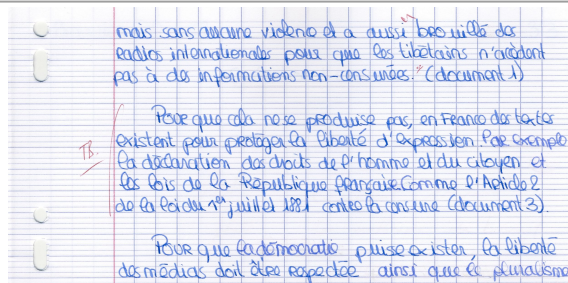 mais sans aucune violence et a aussi brouillé des
radios internationales pour que les tibétains n'accèdent
pas à des informations non-censurées." (document 1)
TB.
Pour que cela ne se produise pas, en France des textes
existent pour protéger la liberté d'expression. Par exemple
la déclaration des droits de l'homme et du citoyen et
les lois de la République française comme l'Article 2
de la loi du 1er juillet 1881 contre la censure (document 3).
Pour que la démocratie puisse exister, la liberté
des médias doit être respectée ainsi que le pluralisme